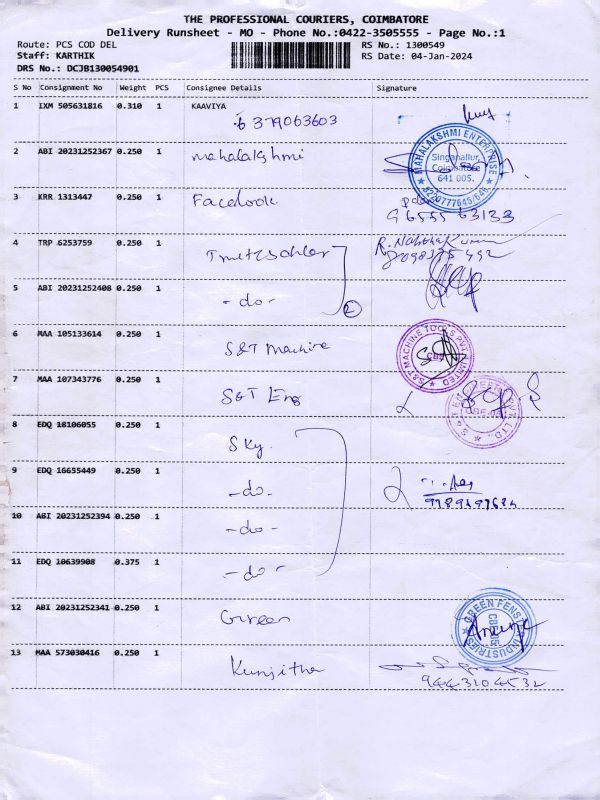 THE PROFESSIONAL COURIERS, COIMBATORE
Delivery Runsheet - MO - Phone No.:0422-3505555 - Page No.:1
Route: PCS COD DEL
RS No.: 1300549
Staff: KARTHIK
RS Date: 04-Jan-2024
DRS No.: DCJB130054901
S No Consignment No Weight PCS Consignee Details Signature
1 IXM 505631816 0.310 1 KAAVIYA
6379063603
2 ABI 20231252367 0.250 1 mahalakshmi
MAHALAKSHMI ENTERPRISE
Singanallur,
Coimbatore
641 005.
8220777645/646
3 KRR 1313447 0.250 1 Facelook
96555 63133
4 TRP 6253759 0.250 1
5 ABI 20231252408 0.250 1 -do-
2
6 MAA 105133614 0.250 1 S&T Machine
S&T MACHINE TOOLS PVT LIMITED
7 MAA 107343776 0.250 1 S&T Eng
8 EDQ 18106055 0.250 1 Sky
9 EDQ 16655449 0.250 1 -do-
10 ABI 20231252394 0.250 1 -do-
11 EDQ 10639908 0.375 1 -do-
12 ABI 20231252341 0.250 1 Green
GREEN FENSTER INDUSTRIES
13 MAA 573030416 0.250 1 Kunjitha
9443204532